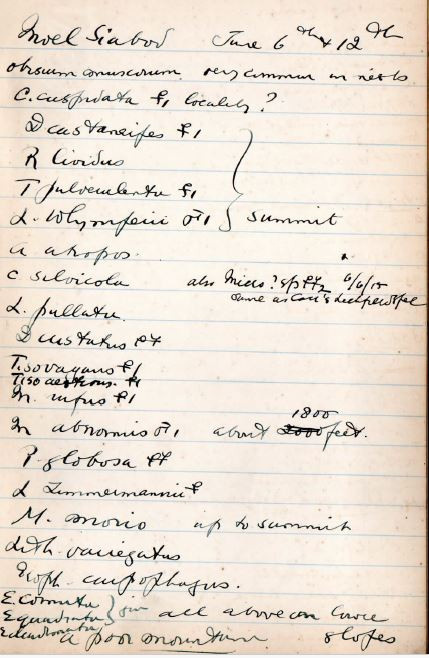 Moel Siabod June 6th & 12th
obisium muscorum very common in nests
C. cuspidata ♀1 locality?
D castaneipes ♀1
R lividus
T pulverulenta ♀1
L. Whymperii ♂1 } summit
A atropos.
C silvicola also Micro? sp ♀♀2 6/6/15
same as
L. pullata
D custatus ♀♀
Tiso vagans ♀1
Tiso aestivus. ♀1
M. rufus ♀1
M abnormis ♂1 about 1800 feet.
P. globosa ♀♀
L Zimmermannii ♀
M. morio up to summit
Lith. variegatus
E. cornuta
E quadrata } juv all above on lower
a poor mountain slopes